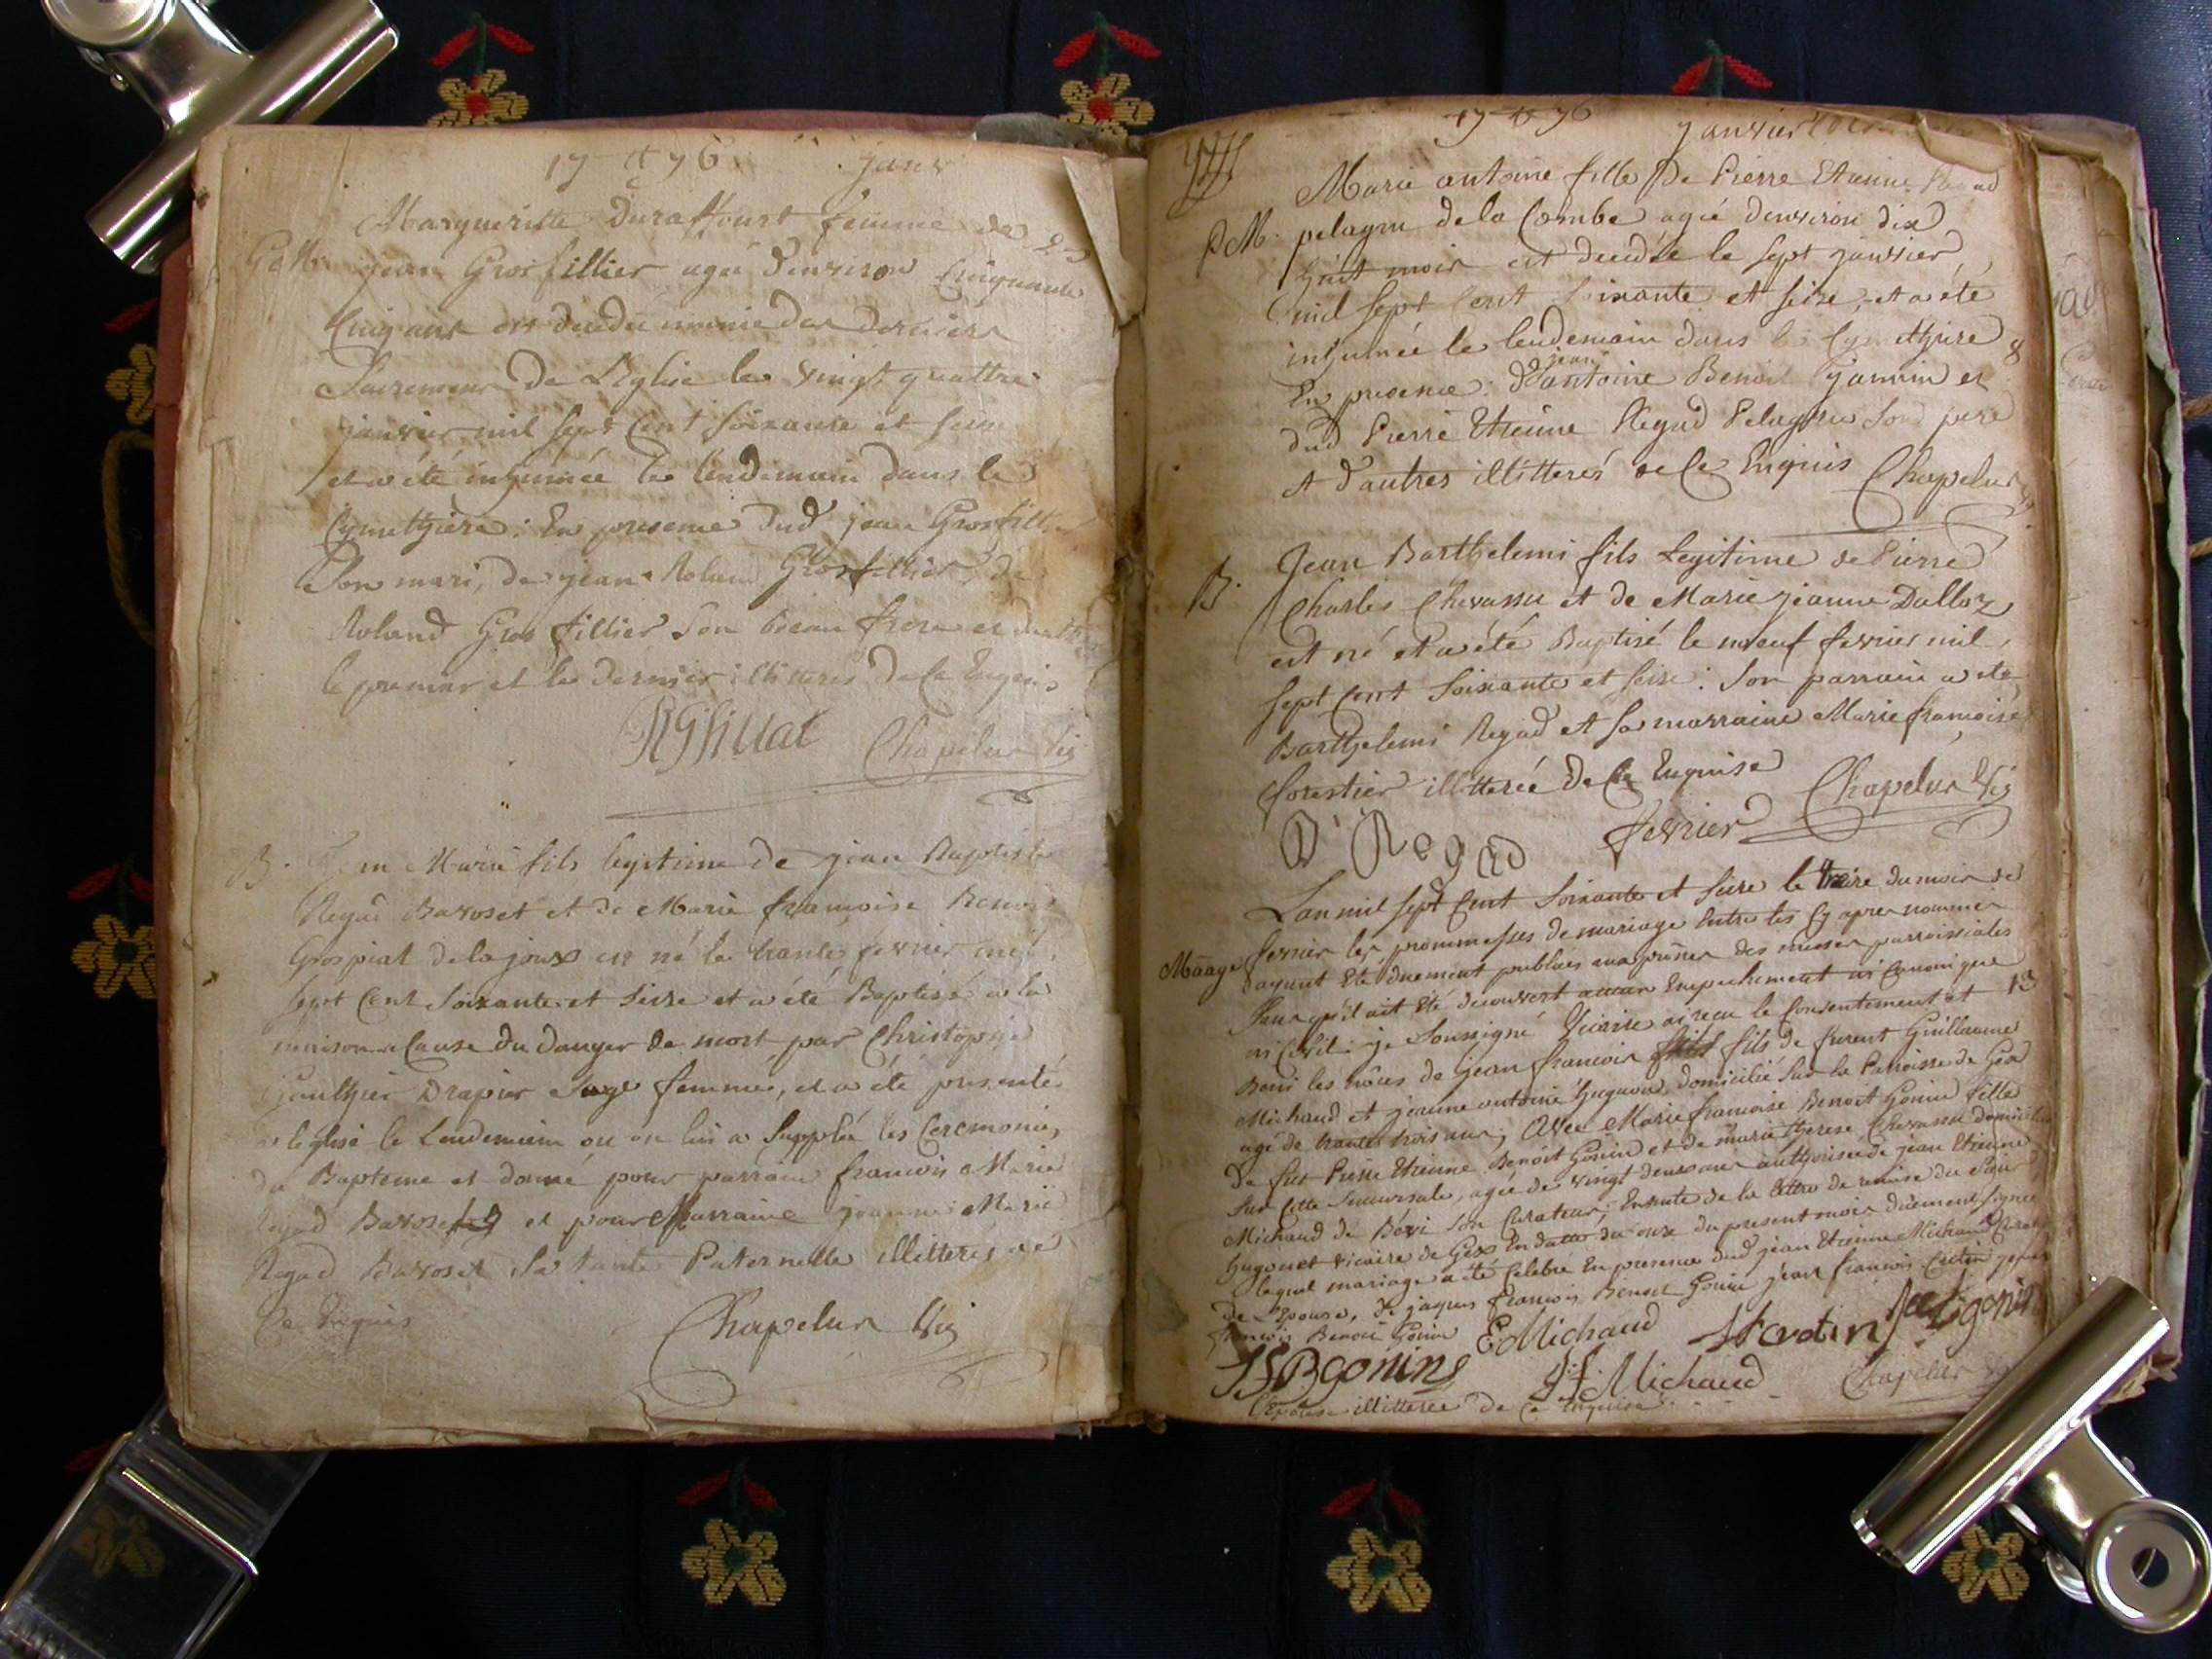 17 et 76. janv
Margueritte Duraffourt femme de
GdM. jean Grosfillier agée d'environ Cinquante
Cinq ans est decedée munie des derniers
Sacremens de L'Eglise le vingt quattre
janvier mil sept Cent soixante et seize
et a été inhumée le lendemain dans le
Cymethiere : En presence dud jean Grosfillier
Son mari, de jean Rolland Grosfillier, de
Roland Gros fillier Son beau frere et
le premier et le dernier illitteres de ce Enquis
Chapelur Vic
B. Jean Marie fils legitime de jean Baptiste
Regad Baroset et de Marie francoise Benoit
Grospiat de la joux est né le trante fevrier mil
sept Cent Soixante et seize et a été Baptisé a la
maison a Cause du danger de mort par Christophe
Gaulthier Drapier Sage femme, et a été presenté
a l'eglise le Lendemain ou on lui a Supplée les Ceremonies
du Bapteme et donné pour parrain francois Marie
Regad Baroset et pour Marraine jeanne Marie
Regad Baroset Sa tante Paternelle illitterés de
Ce Enquis
Chapelur Vic
17 et 76 janvier
Marie antoine fille De Pierre Etienne Regad
P.M. pelagru de la Combe agée d'environ dix
huit mois est decedée le sept janvier
mil sept Cent Soixante et seize, et a été
inhumée le lendemain dans le Cymethiere 8
En presence : D jean antoine Benoit jannin et
dud Pierre Etienne Regad Pelagru Son pere
et d'autres illitterés de Ce Enquis Chapelur
Jean Barthelemi fils Legitime de Pierre
B. Charles Chevassu et de Marie jeanne Dalloz
est né et a été Baptisé le neuf fevrier mil
sept Cent Soixante et seize : Son parrain a été
Barthelemi Regad et Sa marraine Marie francoise
forestier illitterée De Ce Enquise Chapelur Vic
B Regad fevrier
L'an mil sept Cent Soixante et Seize le treize du mois de
fevrier les prommesses de mariage Entre les Cy apres nommés
Maage ayant Eté duement publiées aux prônes des messes parroissiales
Sans qu'il ait Eté decouvert aucun Empechement ni Canonique
ni Civil : je Soussigné Vicaire ai recu le Consentement et 13
Beni les nôces de jean francois fils de furent Guillaume
Michaud et jeanne antoine Huguon domicilié Sur la Paroisse de Gex
agé de trante trois ans ; Avec Marie francoise Benoit Gonin fille
de fut Pierre Etienne Benoit Gonin et de Marie therese Chevassu domiciliée
Sur Cette Succursale, agée de vingt deux ans authorisée de jean Etienne
Michaud de Son Curateur ; Ensuite de la lettre de remise du Sieur
Hugonet vicaire de Gex En datte du onze du present mois duement Signée
lequel mariage a été Celebré En presence dud jean Etienne Michaud
de L'Epouse, de jaques francois Benoit Gonin jean francois Cretin
francois Benoit Gonin E Michaud
J F Michaud Chapelur
L'Epouse illitterée de Ce Enquise